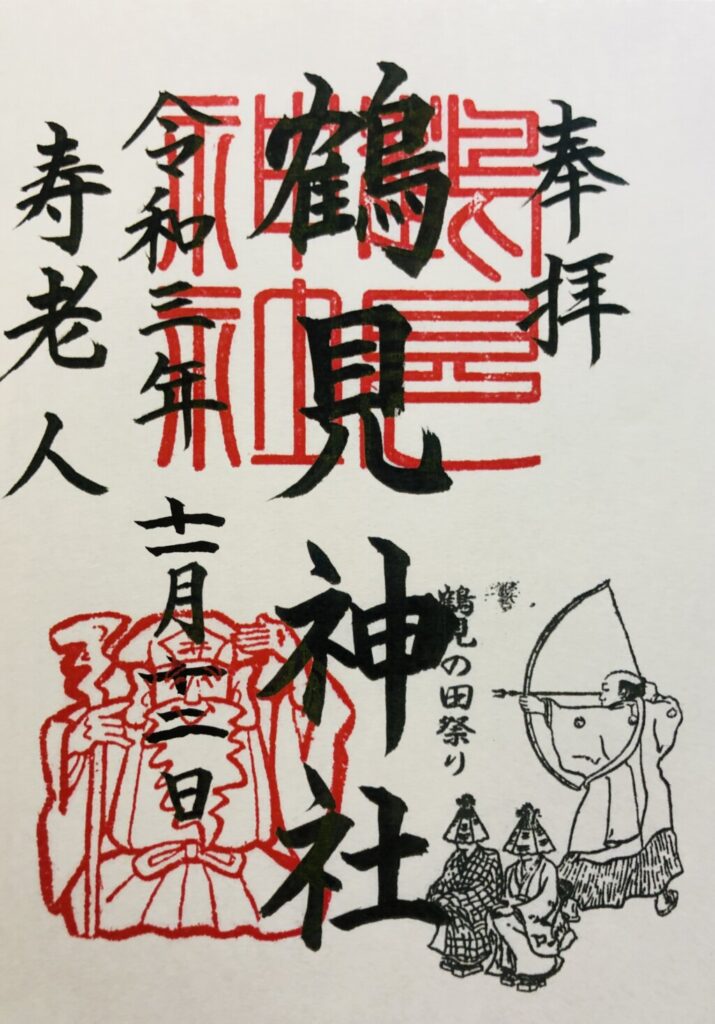 奉拝
鶴見神社
鶴見の田祭り
令和三年 十一月十二日
寿老人
鶴見
神社